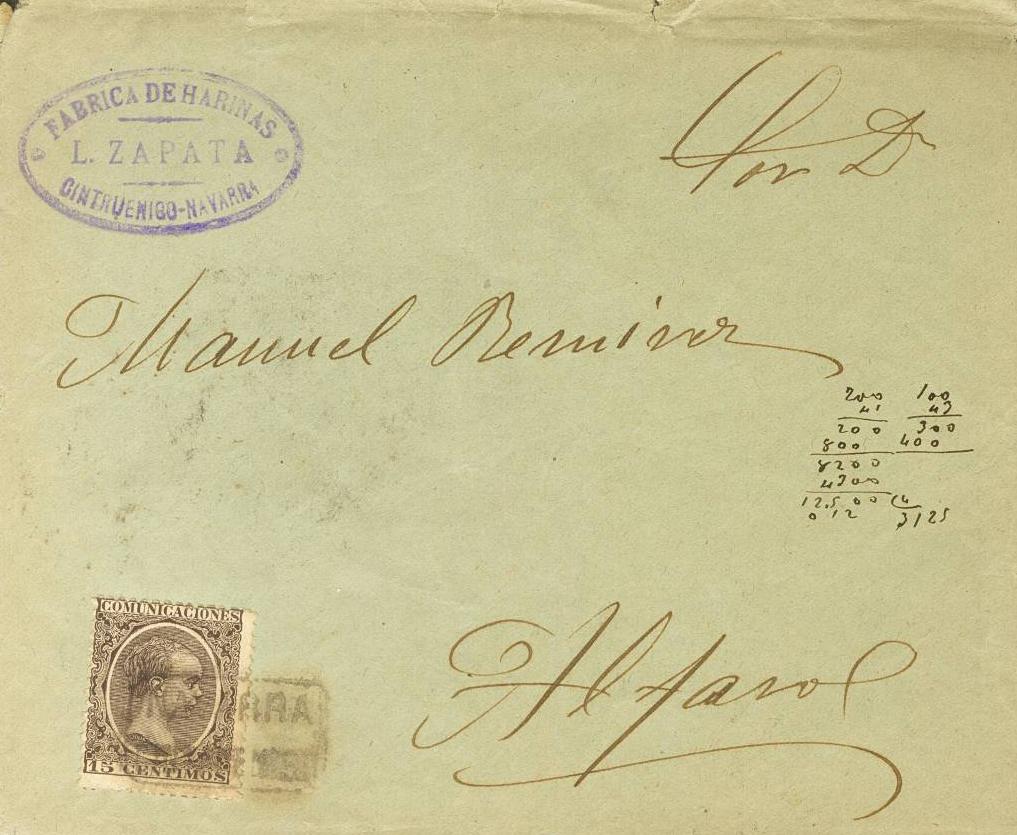 FABRICA DE HARINAS
L. ZAPATA
CINTRUENIGO-NAVARRA
Manuel Remirez
200 100
41 43
200 300
800 400
8200
4300
12.500 4
012 3125
Alfaro
COMUNICACIONES
RRA
15 CENTIMOS